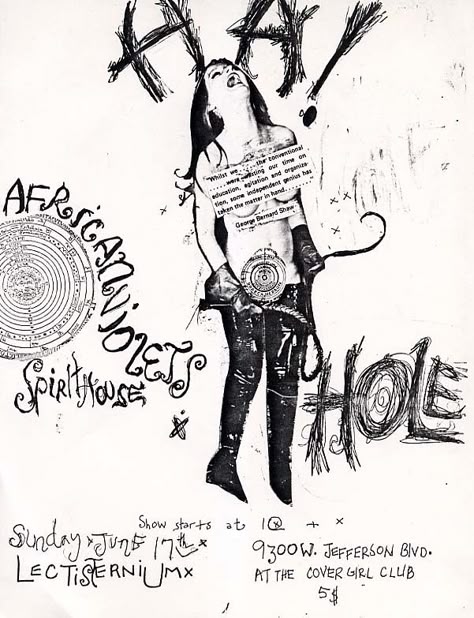 HA!
"Whilst we . . . . the conventional
. . . . were wasting our time on
education, agitation and organiza-
tion, some independent genius has
taken the matter in hand . . . . "
George Bernard Shaw
AFRICAN VIOLETS
SPIRITHOUSE
HOLE
Show starts at 10
Sunday x JUNE 17th x
LECTISTERNIUM x
9300 W. JEFFERSON BLVD.
AT THE COVER GIRL CLUB
5$